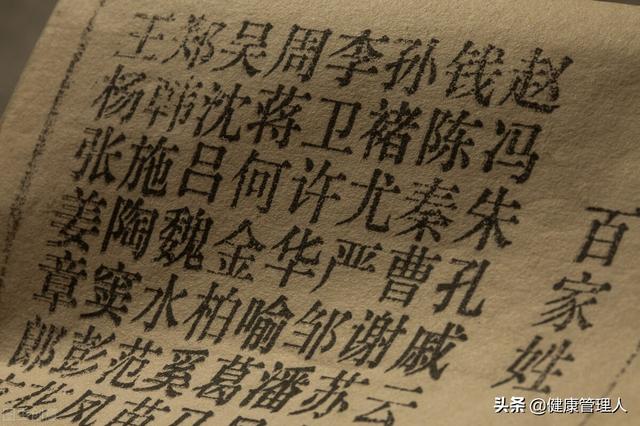 百家姓
赵钱孙李周吴郑王
冯陈褚卫蒋沈韩杨
朱秦尤许何吕施张
孔曹严华金魏陶姜
戚谢邹喻柏水窦章
云苏潘葛奚范彭郎
马苗凤花
头条 @健康管理人